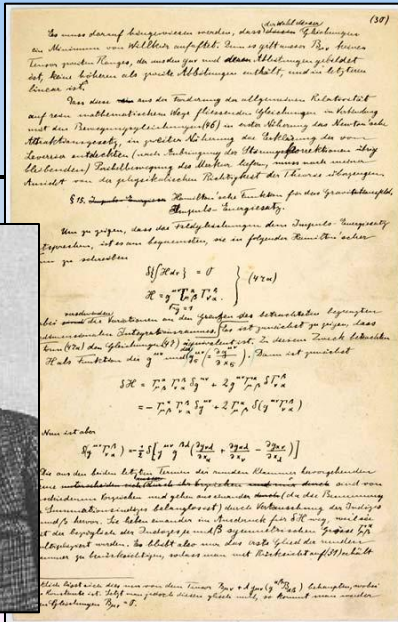 (30)
der Wahl dieser
Es muss darauf hingewiesen werden, dass Gleichungen
ein Minimum von Willkür anhaftet. Denn es gibt ausser Bμν keinen
Tensor zweiten Ranges, der aus den gμν und deren Ableitungen gebildet
ist, keine höheren als zweite Ableitungen enthält, und in letzteren
linear ist.
Dass diese aus der Forderung der allgemeinen Relativität
auf rein mathematischem Wege fliessenden Gleichungen in Verbindung
mit den Bewegungsgleichungen (46) in erster Näherung das Newton'sche
Attraktionsgesetz, in zweiter Näherung die Erklärung der von
Leverrier entdeckten (nach Anbringung der Störungskorrektionen übrig
bleibenden) Perihelbewegung des Merkur liefern, muss nach meiner
Ansicht von der physikalischen Richtigkeit der Theorie überzeugen.
§ 15. Hamilton'sche Funktion für das Gravitationsfeld,
Impuls-Energiesatz.
Um zu zeigen, dass die Feldgleichungen dem Impuls-Energiesatz
entsprechen, ist es am bequemsten, sie in folgender Hamilton'scher
zu schreiben
δ{∫H dτ} = 0
H = g^μν Γ^α_μβ Γ^β_να } (47a)
√-g = 1
verschwinden
die Variationen an den Grenzen des betrachteten begrenzten
Integrationsraumes. Es ist zunächst zu zeigen, dass
(47a) den Gleichungen (47) äquivalent ist. Zu diesem Zweck betrachten
H als Funktion der g^μν und g^μν_σ (= ∂g^μν/∂x_σ). Dann ist zunächst
δH = Γ^α_μβ Γ^β_να δg^μν + 2 g^μν Γ^α_μβ δΓ^β_να
= − Γ^α_μβ Γ^β_να δg^μν + 2 Γ^α_μβ δ(g^μν Γ^β_να)
Nun ist aber
δ(g^μν Γ^β_να) = −½ δ[g^μν g^βλ (∂g_νλ/∂x_α + ∂g_αλ/∂x_ν − ∂g_αν/∂x_λ)]
Die aus den beiden letzten Termen der runden Klammer hervorgehenden
sind von
Vorzeichen und gehen auseinander (da die Benennung
Summationsindizes belanglos ist) durch Vertauschung der Indizes
und β hervor. Sie heben einander im Ausdruck für δH weg, weil sie
mit der bezüglich der Indizes μ und β symmetrischen Grösse Γ^α_μβ
multipliziert werden. Es bleibt also nur das erste Glied der runden
zu berücksichtigen, sodass man mit Rücksicht auf (31) erhält
lässt sich dies nur von dem Tensor Bμν + λ gμν (g^αβ Bαβ) behaupten, wobei
Konstante ist. Setzt man jedoch diesen gleich null, so kommt man wieder
Gleichungen Bμν = 0.